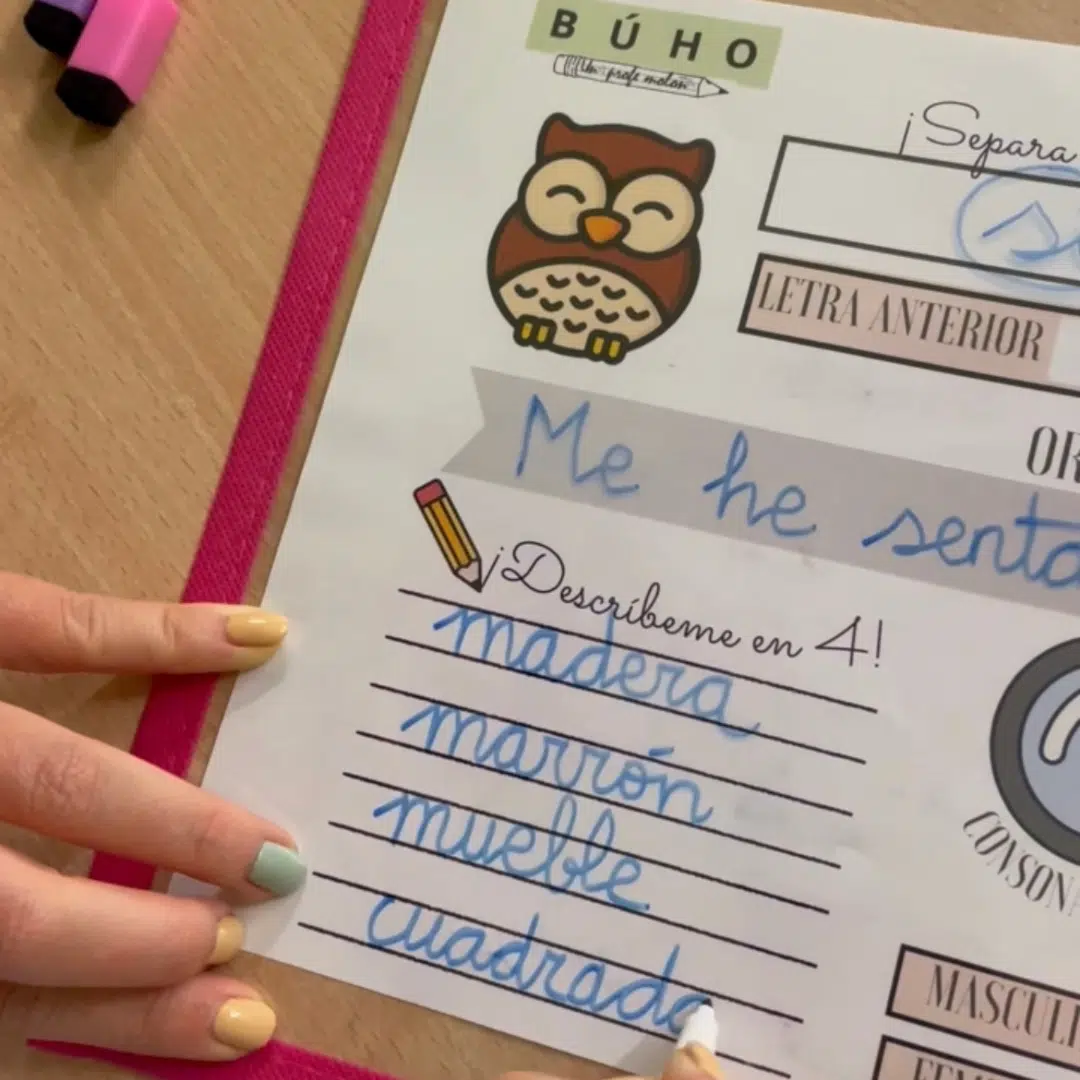 BÚHO
Un profe molón
¡Separa
LETRA ANTERIOR
Me he senta
¡Descríbeme en 4!
madera
marrón
mueble
cuadrado
MASCULI